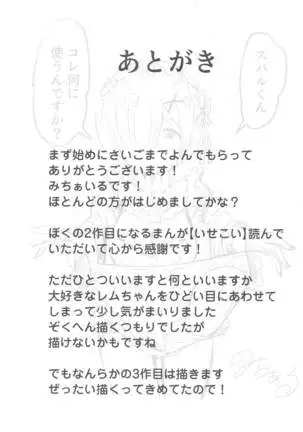 あとがき
スバルくん
コレ何に
使うんですか?
まず始めにさいごまでよんでもらって
ありがとうございます!
みちぁいるです!
ほとんどの方がはじめましてかな?
ぼくの2作目になるまんが【いせこい】読んで
いただいて心から感謝です!
ただひとついいますと何といいますか
大好きなレムちゃんをひどい目にあわせて
しまって少し気がまいりました
ぞくへん描くつもりでしたが
描けないかもですね
でもなんらかの3作目は描きます
ぜったい描くってきめてたので!